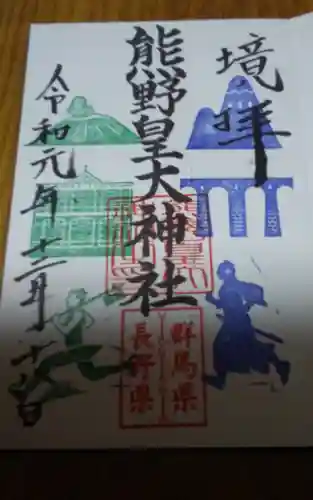 境拝
熊野皇大神社
群馬県
長野県
令和元年十二月十六日